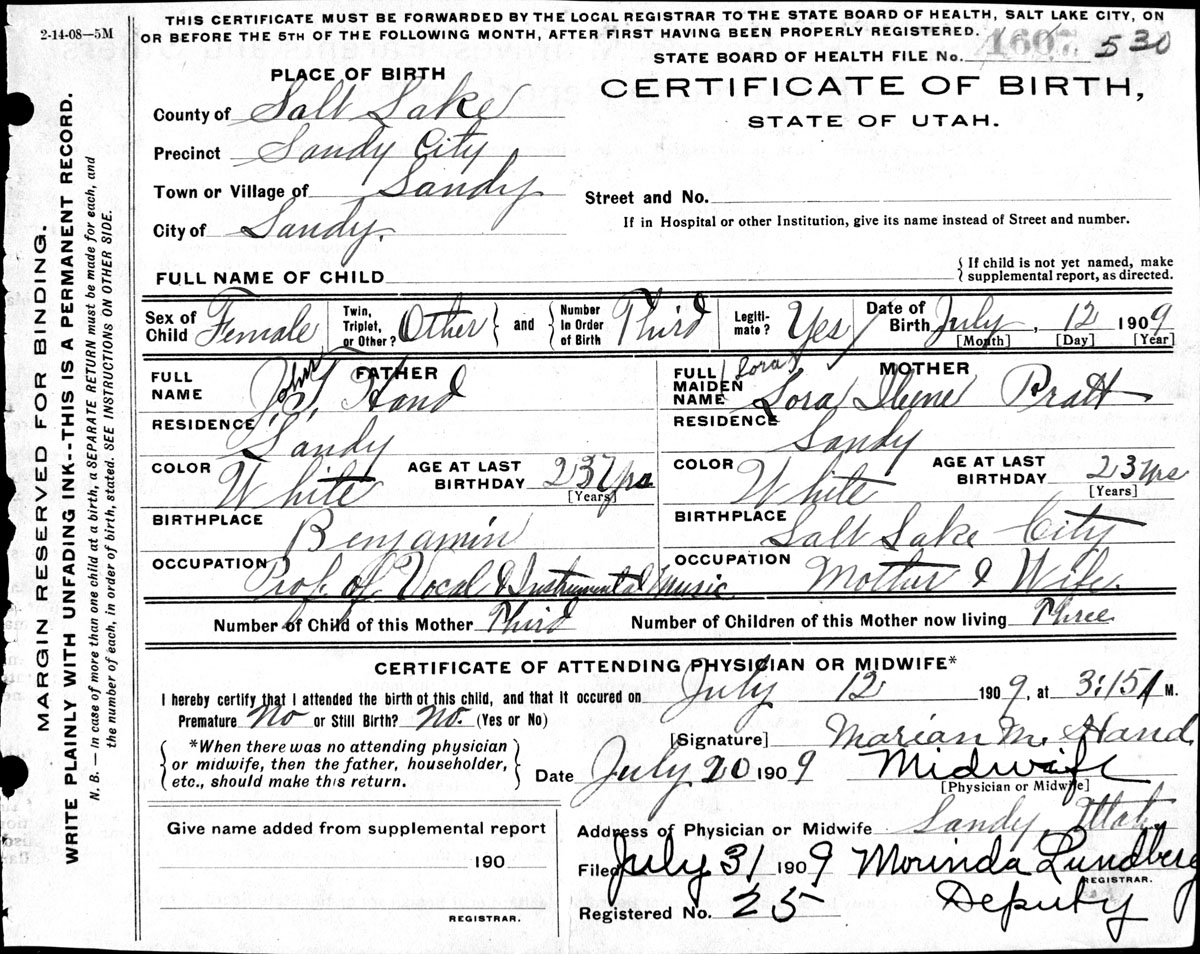 2-14-08—5M
THIS CERTIFICATE MUST BE FORWARDED BY THE LOCAL REGISTRAR TO THE STATE BOARD OF HEALTH, SALT LAKE CITY, ON
OR BEFORE THE 5TH OF THE FOLLOWING MONTH, AFTER FIRST HAVING BEEN PROPERLY REGISTERED.
STATE BOARD OF HEALTH FILE No. 1607 530
PLACE OF BIRTH
CERTIFICATE OF BIRTH,
STATE OF UTAH.
County of Salt Lake
Precinct Sandy City
Town or Village of Sandy
Street and No.
If in Hospital or other Institution, give its name instead of Street and number.
City of Sandy.
FULL NAME OF CHILD
{ If child is not yet named, make
supplemental report, as directed.
Sex of Child Female
Twin, Triplet, or Other? Other } and { Number In Order of Birth Third
Legiti-mate? Yes
Date of Birth July, 12 1909
[Month] [Day] [Year]
FATHER
FULL NAME John J. Hand
RESIDENCE Sandy
COLOR White
AGE AT LAST BIRTHDAY 237 yrs
[Years]
BIRTHPLACE Benjamin
OCCUPATION Prof. of Vocal & Instrumental Music
MOTHER
FULL MAIDEN NAME (Lora) Lora Ilene Pratt
RESIDENCE Sandy
COLOR White
AGE AT LAST BIRTHDAY 23 yrs
[Years]
BIRTHPLACE Salt Lake City
OCCUPATION Mother & Wife.
Number of Child of this Mother Third
Number of Children of this Mother now living Three
CERTIFICATE OF ATTENDING PHYSICIAN OR MIDWIFE*
I hereby certify that I attended the birth of this child, and that it occured on July 12 1909, at 3:15 A M.
Premature No or Still Birth? No. (Yes or No)
{ *When there was no attending physician
or midwife, then the father, householder,
etc., should make this return. }
[Signature] Marian M. Hand
Date July 20 1909 Midwife
[Physician or Midwife]
Give name added from supplemental report
190
REGISTRAR.
Address of Physician or Midwife Sandy, Utah
Filed July 31 1909 Morinda Lundberg
REGISTRAR.
Registered No. 25 Deputy
MARGIN RESERVED FOR BINDING.
WRITE PLAINLY WITH UNFADING INK--THIS IS A PERMANENT RECORD.
N. B. — In case of more than one child at a birth, a SEPARATE RETURN must be made for each, and
the number of each, in order of birth, stated. SEE INSTRUCTIONS ON OTHER SIDE.